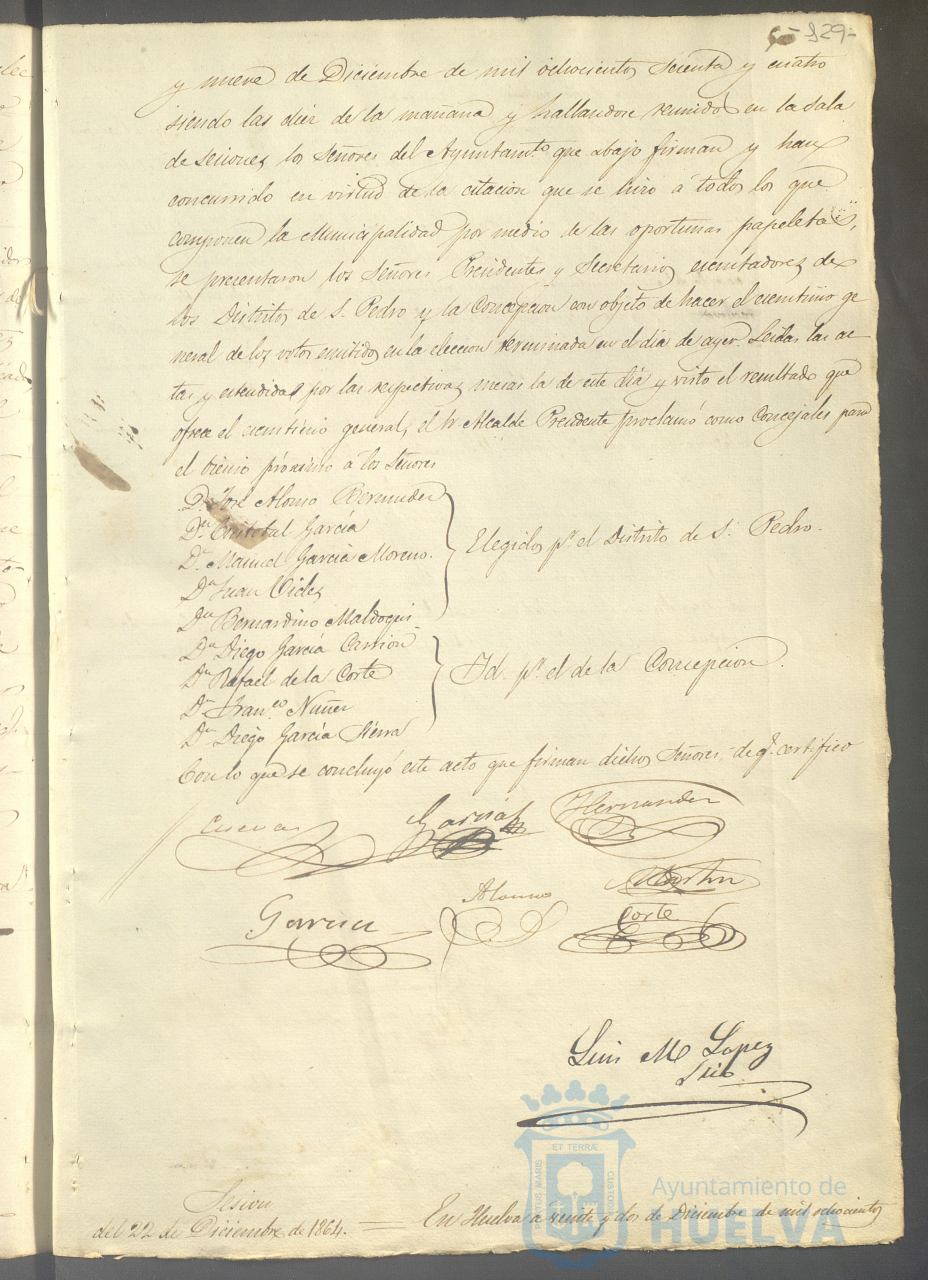 829
y nueve de Diciembre de mil ochocientos Sesenta y cuatro
siendo las diez de la mañana y hallandose reunidos en la Sala
de Sesiones los Señores del Ayuntam.to que abajo firman y han
concurrido en virtud de la citacion que se hizo á todos los que
componen la Municipalidad por medio de las oportunas papeletas,
se presentaron los Señores Presidentes y Secretarios escrutadores de
los Distritos de S. Pedro y la Concepcion con objeto de hacer el escrutinio ge
neral de los votos emitidos en la eleccion terminada en el dia de ayer. Leidas las ac
tas y estendidas por las respectivas mesas la de este dia y visto el resultado que
ofrece el escrutinio general, el Sr Alcalde Presidente proclamó como Concejales para
el bienio próximo á los Señores
D.n José Alonso Bermudez
D.n Cristobal García
D.n Manuel García Moreno.
D.n Juan Vides
D.n Bernardino Maldoqui
Elegidos p.r el Distrito de S. Pedro.
D.n Diego García Carrion
D.n Rafael de la Corte
D.n Fran.co Nuñez
D.n Diego García Sierra
Id. p.r el de la Concepcion.
Con lo que se concluyó este acto que firman dichos Señores, de q.e certifico
Cuevas
García
Hernandez
Garcia
Alonso
Martin
Corte
Luis M.a Lopez
Srio
Sesion
del 22 de Diciembre de 1864. = En Huelva a veinte y dos de Diciembre de mil ochocientos
ET TERRÆ
PORTUS MARIS
CUSTODIA
Ayuntamiento de
HUELVA